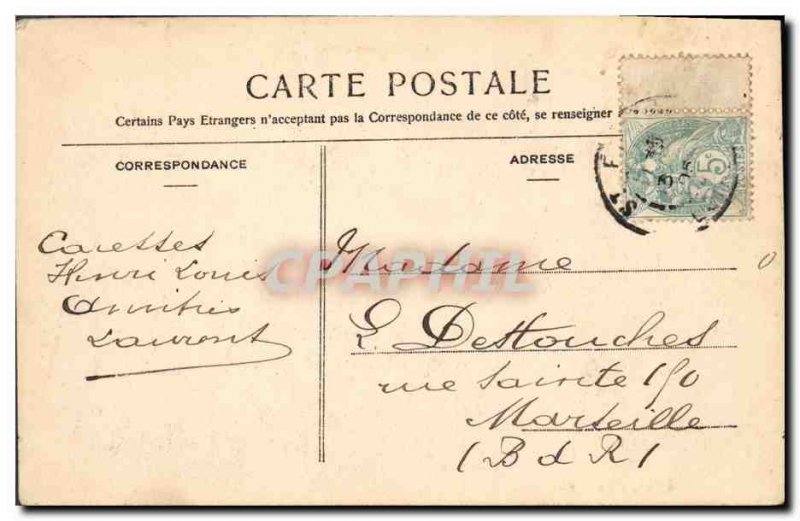 CARTE POSTALE
Certains Pays Etrangers n'acceptant pas la Correspondance de ce côté, se renseigner
CORRESPONDANCE
ADRESSE
Caresses
Henri Louis
Amitiés
Laurent
Madame
L. Destouches
rue Sainte 150
Marseille
(B d R)
CPAPHIL
5c